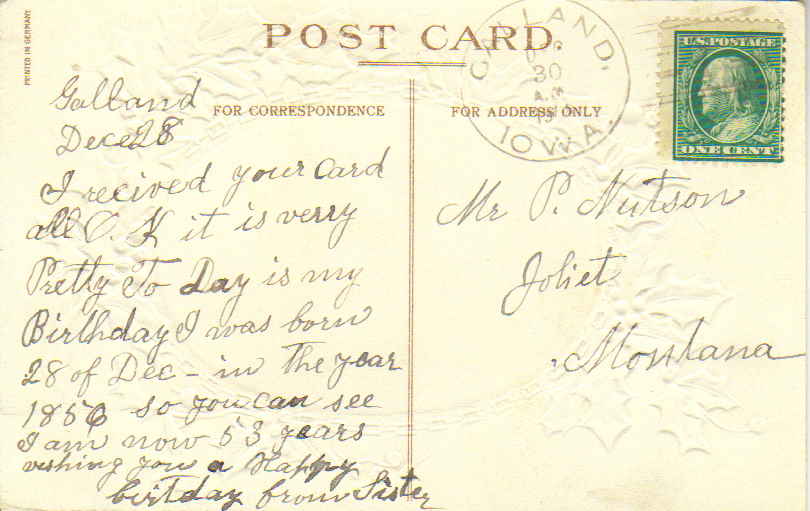 PRINTED IN GERMANY
POST CARD.
FOR CORRESPONDENCE
FOR ADDRESS ONLY
30
A.M
IOWA.
U.S. POSTAGE
ONE CENT
Galland
Dece 28
I recived your card
all O. K it is verry
Pretty To Day is my
Birthday I was born
28 of Dec - in the year
1856 so you can see
I am now 53 years
wishing you a Happy
birtday from Sister
Mr P. Nutson
Joliet
Montana